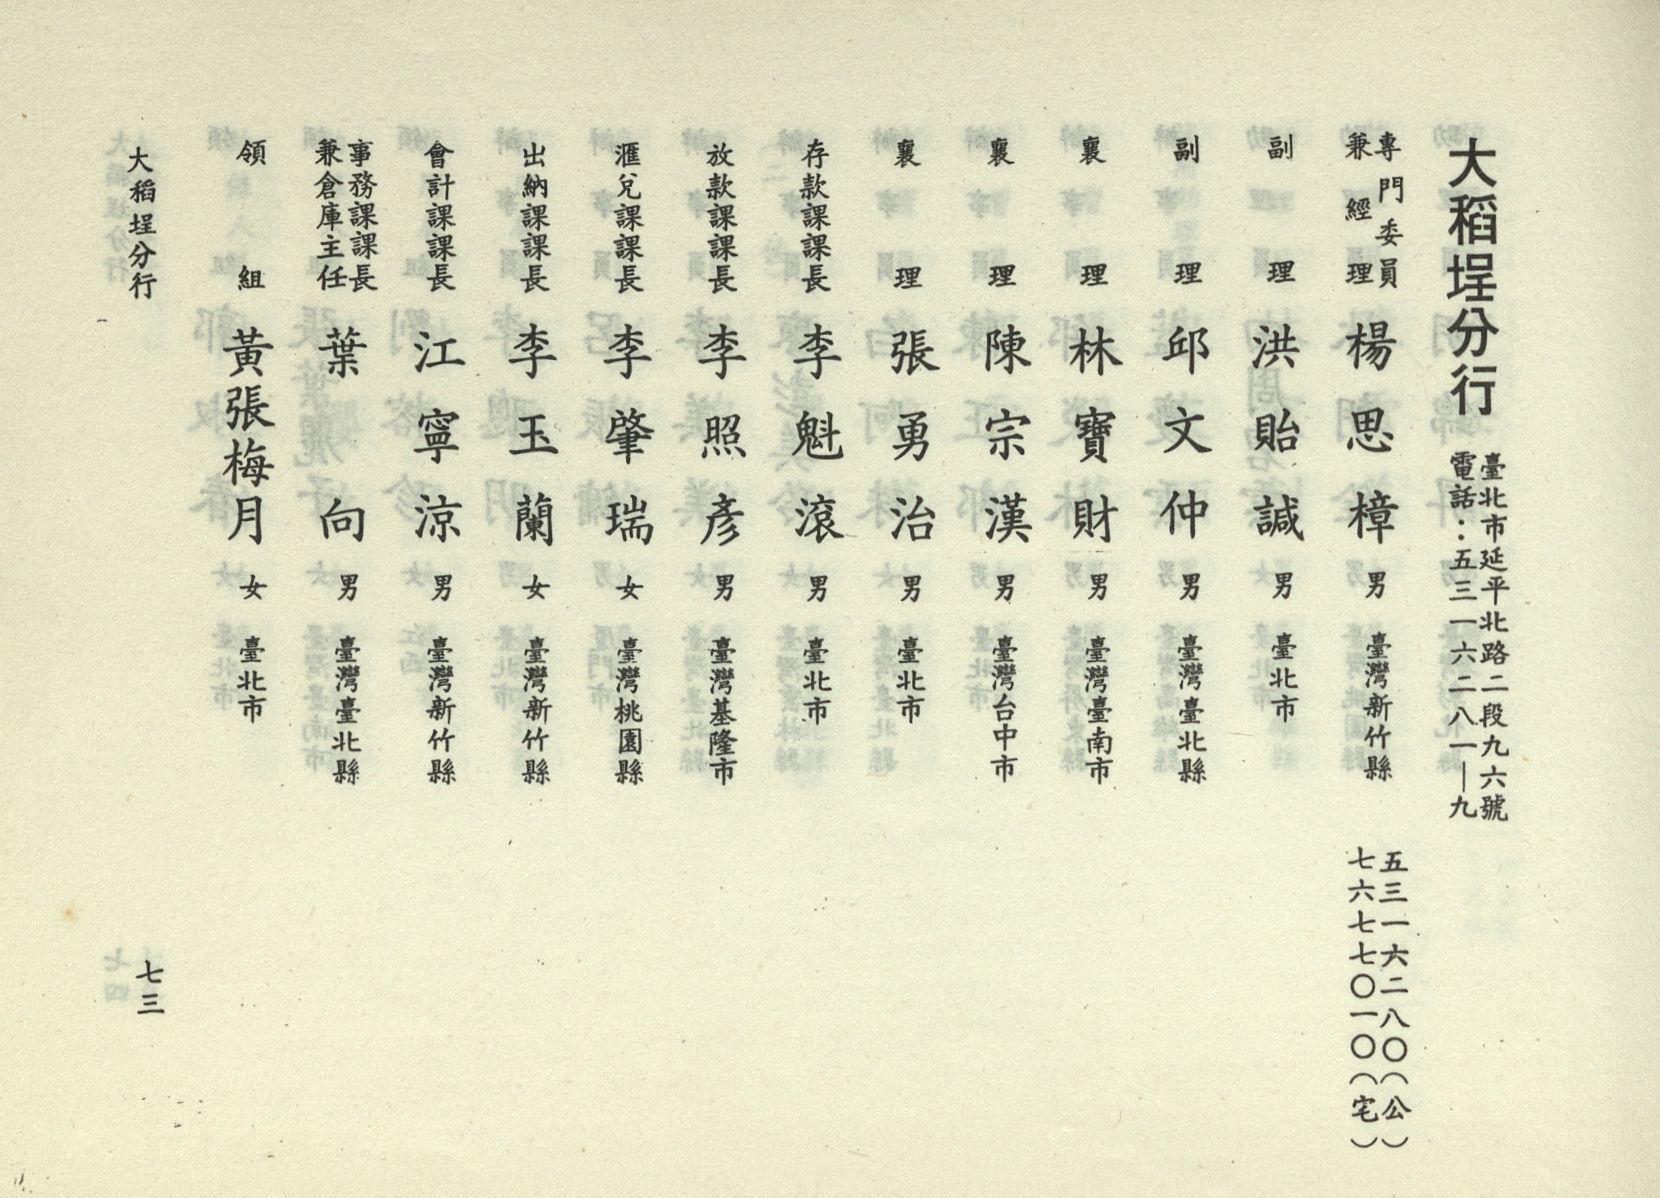 大稻埕分行
臺北市延平北路二段九六號
電話：五三一六二八一—九
專門委員
兼經理
楊思樟 男 臺灣新竹縣
五三一六二八〇（公）
七六七七〇一〇（宅）
副理 洪貽誠 男 臺北市
副理 邱文仲 男 臺灣臺北縣
襄理 林寶財 男 臺灣臺南市
襄理 陳宗漢 男 臺灣台中市
襄理 張勇治 男 臺北市
存款課課長 李魁滾 男 臺北市
放款課課長 李照彥 男 臺灣基隆市
滙兌課課長 李肇瑞 女 臺灣桃園縣
出納課課長 李玉蘭 女 臺灣新竹縣
會計課課長 江寧涼 男 臺灣新竹縣
事務課課長
兼倉庫主任
葉向 男 臺灣臺北縣
領組 黃張梅月 女 臺北市
大稻埕分行
七三